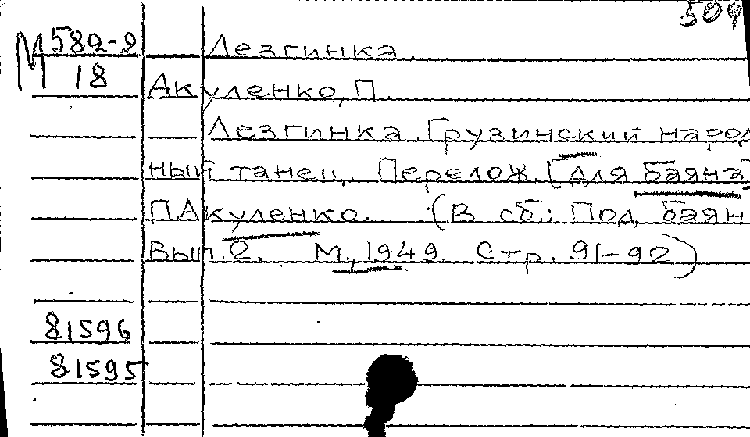 509
М 582-2 Лезгинка
18
Акуленко, П.
Лезгинка. Грузинский народ
ный танец. Перелож. [для баяна]
П. Акуленко. (В сб.: Под баян
Вып. 2. М., 1949. Стр. 91-92)
81596
81595